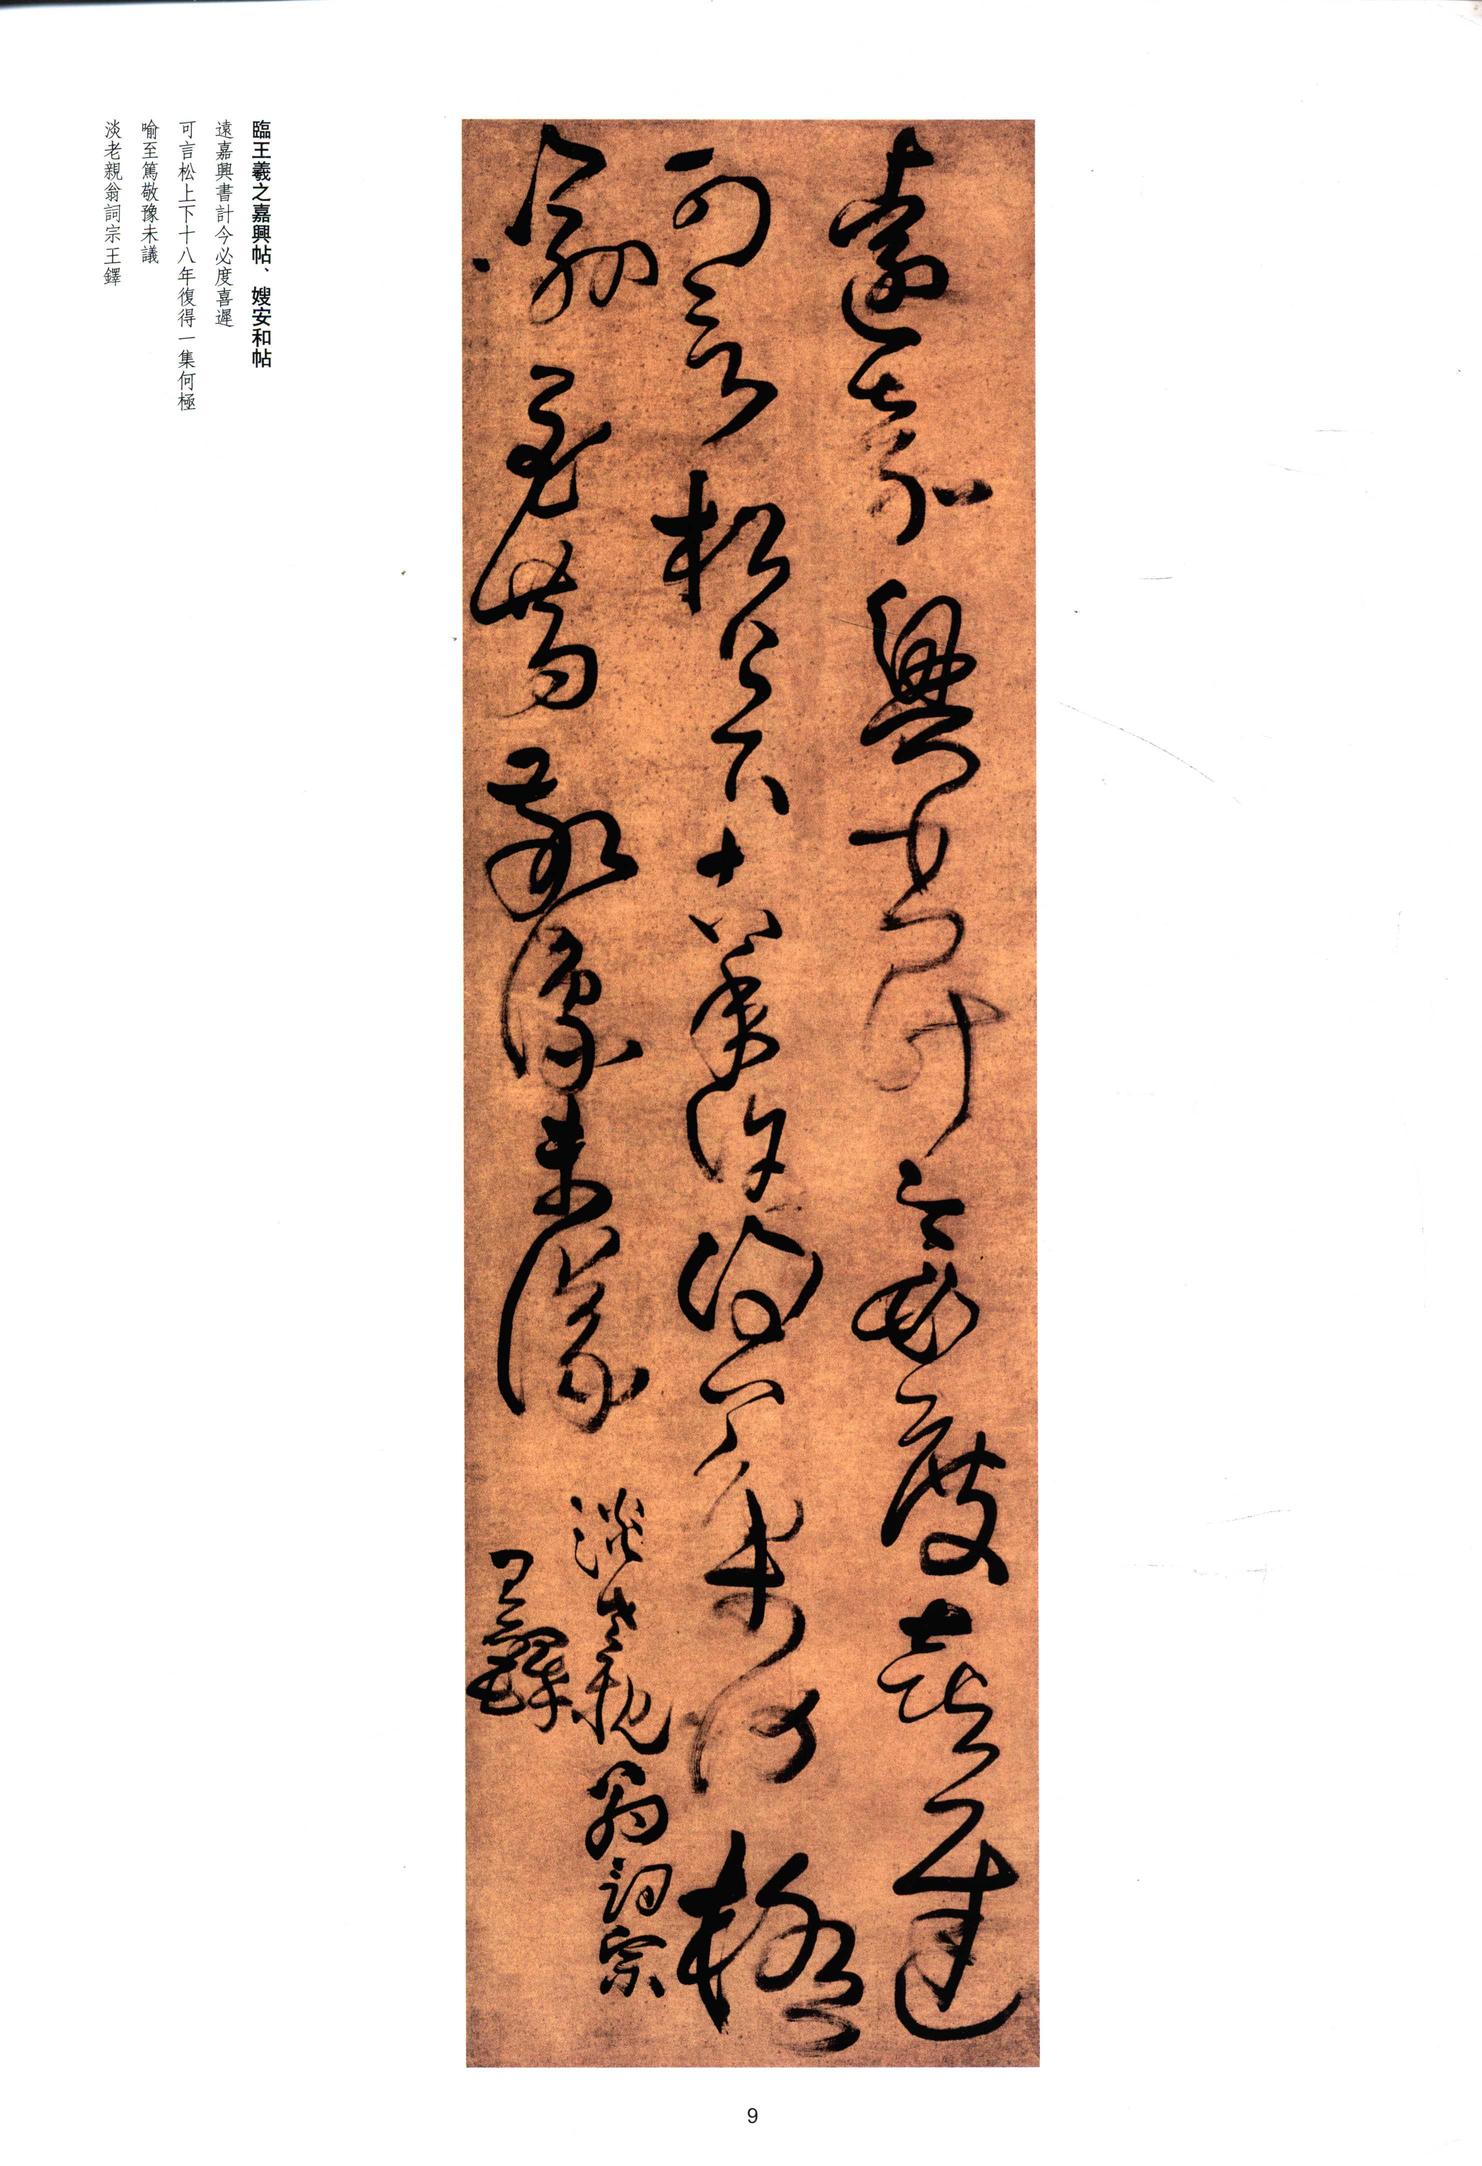 遠嘉興書計今必度喜遲
可言松上下十八年復得一集何極
喻至篤敬豫未議
淡老親翁詞宗
王鐸
臨王羲之嘉興帖、嫂安和帖
遠嘉興書計今必度喜遲
可言松上下十八年復得一集何極
喻至篤敬豫未議
淡老親翁詞宗王鐸
9